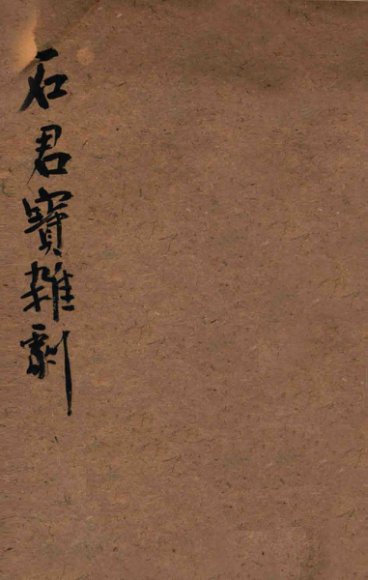 石君寶雜劇